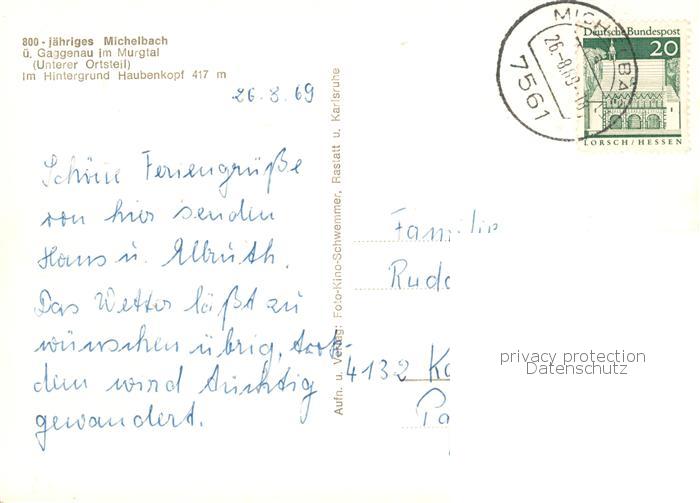 800 - jähriges Michelbach
ü. Gaggenau im Murgtal
(Unterer Ortsteil)
Im Hintergrund Haubenkopf 417 m
26.8.69
Schöne Feriengrüße
von hier senden
Hans u.
Das Wetter läßt zu
wünschen übrig, trotz-
dem wird tüchtig
gewandert.
Aufn. u. Verlag: Foto-Kino-Schwemmer, Rastatt u. Karlsruhe
MICHELBACH
26.-8.69
7561
Deutsche Bundespost
20
LORSCH/HESSEN
Familie
4132
privacy protection
Datenschutz